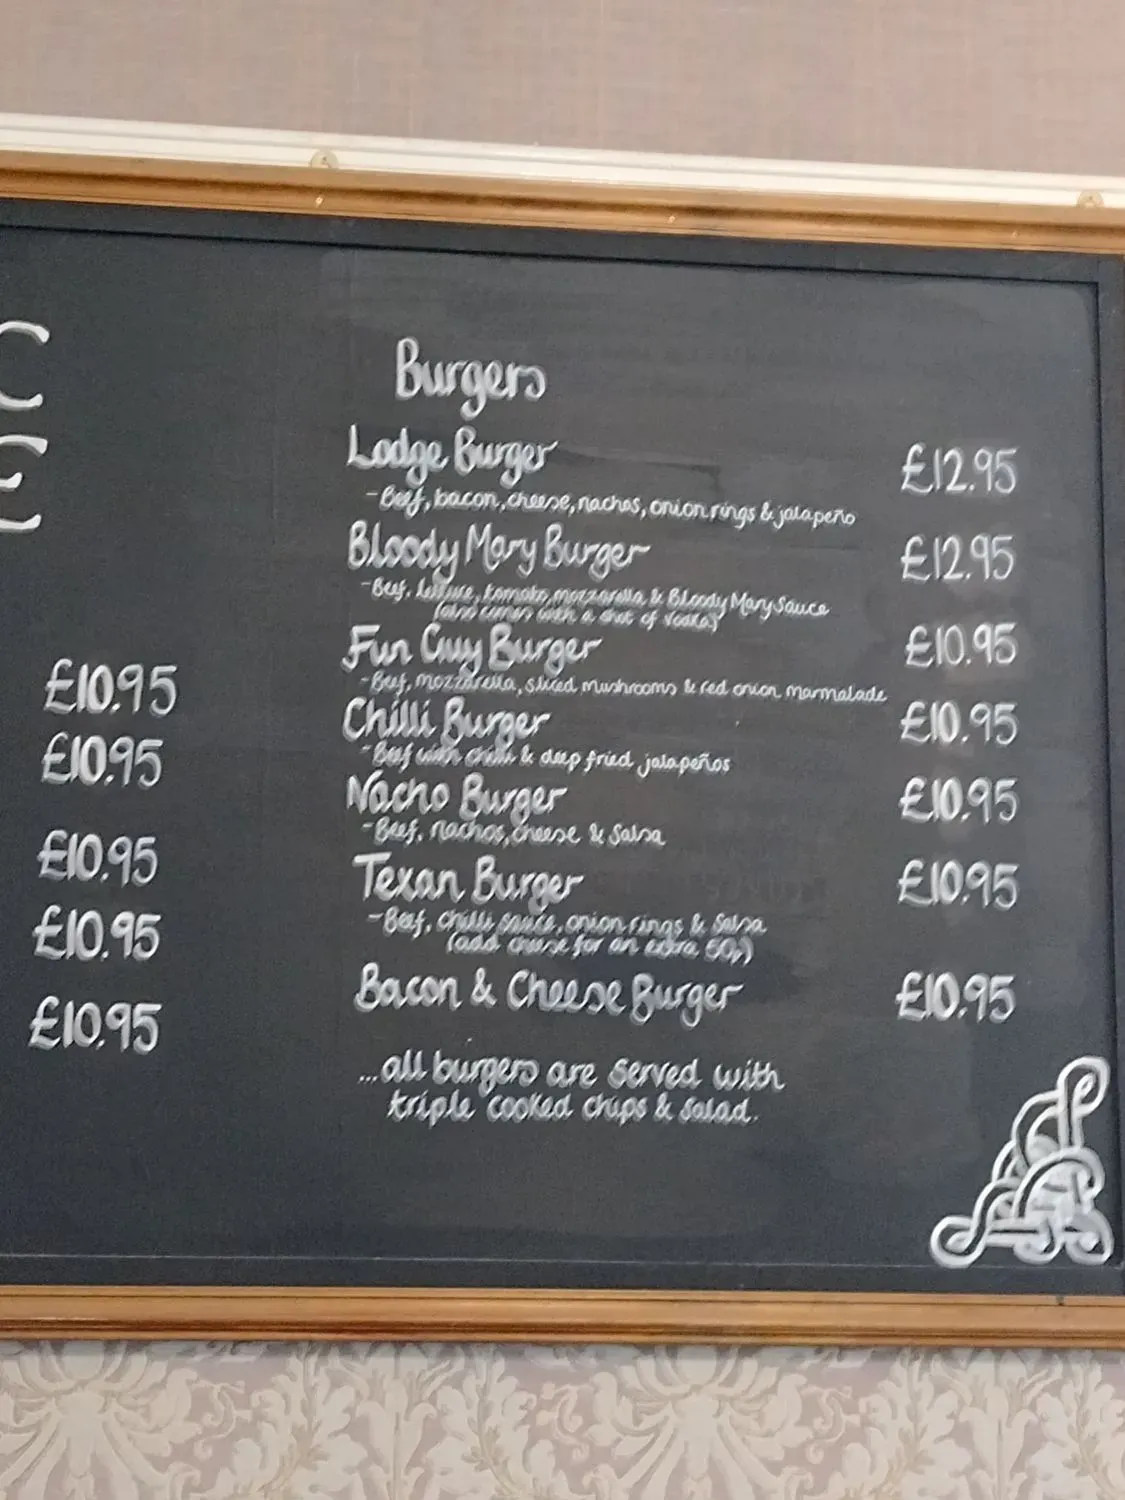 C
E
£10.95
£10.95
£10.95
£10.95
£10.95
Burgers
Lodge Burger £12.95
-Beef, bacon, cheese, nachos, onion rings & jalapeño
Bloody Mary Burger £12.95
-Beef, lettuce, tomato, mozzarella & Bloody Mary Sauce
(also comes with a shot of vodka)
Fun Guy Burger £10.95
-Beef, mozzarella, sliced mushrooms & red onion marmalade
Chilli Burger £10.95
-Beef with chilli & deep fried jalapeños
Nacho Burger £10.95
-Beef, nachos, cheese & Salsa
Texan Burger £10.95
-Beef, chilli sauce, onion rings & Salsa
(add cheese for an extra 50p)
Bacon & Cheese Burger £10.95
...all burgers are served with
triple cooked chips & salad.